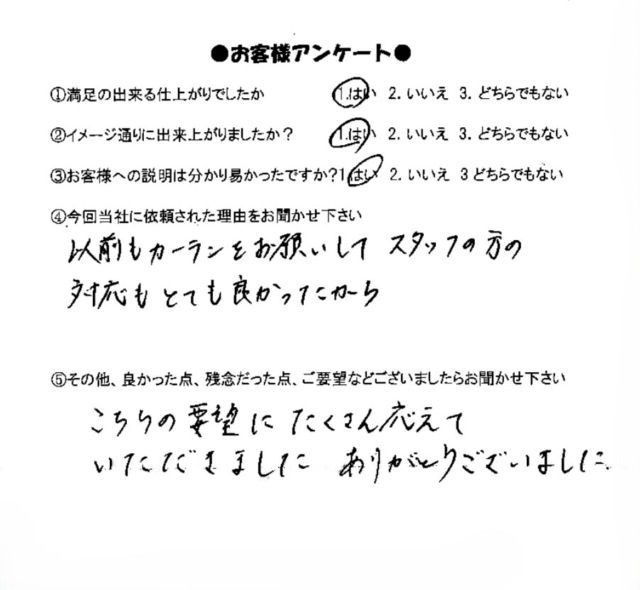 ●お客様アンケート●
①満足の出来る仕上がりでしたか 1.はい 2.いいえ 3.どちらでもない
②イメージ通りに出来上がりましたか？ 1.はい 2.いいえ 3.どちらでもない
③お客様への説明は分かり易かったですか？1はい 2.いいえ 3どちらでもない
④今回当社に依頼された理由をお聞かせ下さい
以前もカーランをお願いして スタッフの方の
対応もとても良かったから
⑤その他、良かった点、残念だった点、ご要望などございましたらお聞かせ下さい
こちらの要望にたくさん応えて
いただきました ありがとうございました